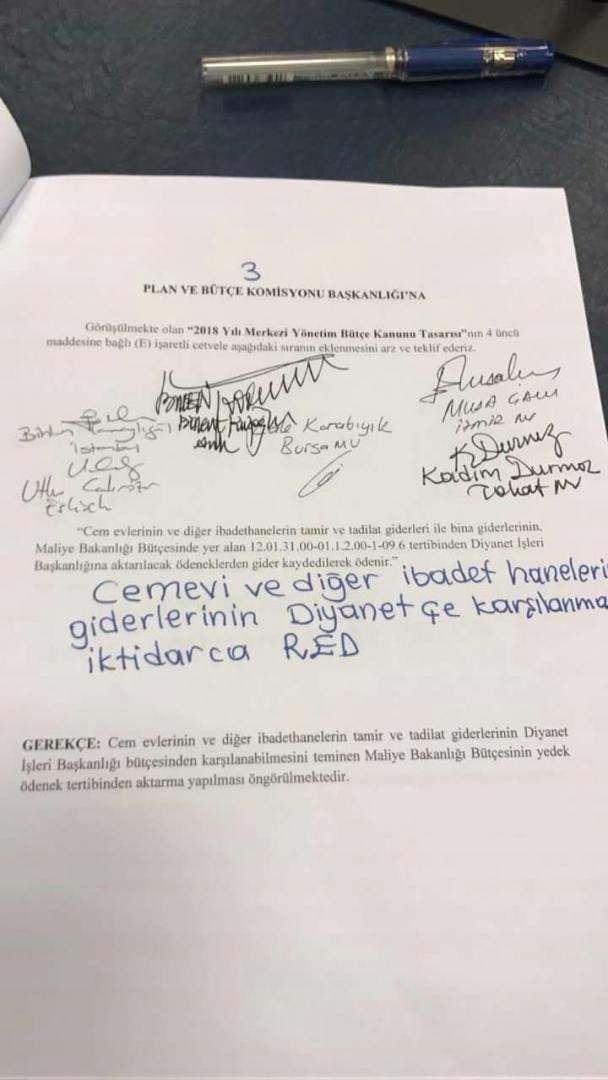 3
PLAN VE BÜTÇE KOMİSYONU BAŞKANLIĞI'NA
Görüşülmekte olan “2018 Yılı Merkezi Yönetim Bütçe Kanunu Tasarısı”nın 4 üncü
maddesine bağlı (E) işaretli cetvele aşağıdaki sıranın eklenmesini arz ve teklif ederiz.
Karabıyık
Bursa MV
MUSA ÇAM
İzmir MV
Kadim Durmaz
Tokat MV
İstanbul
“Cem evlerinin ve diğer ibadethanelerin tamir ve tadilat giderleri ile bina giderlerinin,
Maliye Bakanlığı Bütçesinde yer alan 12.01.31.00-01.1.2.00-1-09.6 tertibinden Diyanet İşleri
Başkanlığına aktarılacak ödeneklerden gider kaydedilerek ödenir.”
Cemevi ve diğer ibadet haneleri
giderlerinin Diyanet çe karşılanma
iktidarca RED
GEREKÇE: Cem evlerinin ve diğer ibadethanelerin tamir ve tadilat giderlerinin Diyanet
İşleri Başkanlığı bütçesinden karşılanabilmesini teminen Maliye Bakanlığı Bütçesinin yedek
ödenek tertibinden aktarma yapılması öngörülmektedir.